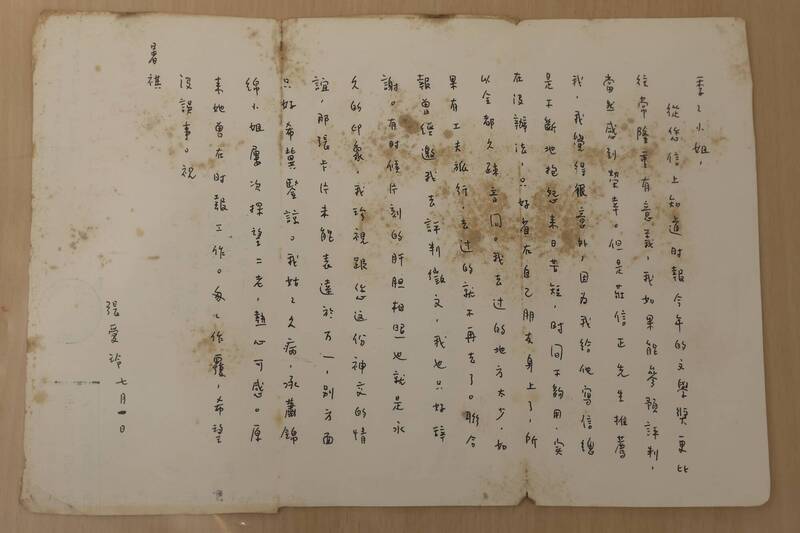 季季小姐，
從您信上知道时報今年的文學獎更比
往常隆重有意義，我如果能參預評判，
當然感到榮幸。但是莊信正先生推薦
我，我覺得很意外，因為我給他寫信總
是不斷地抱怨来日苦短，时间不夠用，实
在沒辦法，只好省在自己朋友身上了，所
以全都久疎音问。我去过的地方太少，如
果有工夫旅行，去过的就不再去了。聯合
報曾經邀我去評判徵文，我也只好辞
謝。有时候片刻的肝胆相照也就是永
久的印象，我珍視跟您这份神交的情
誼，那張卡片未能表達於万一，别方面
只好希冀鑒諒。我姑姑久病，承蕭錦
綿小姐屢次探望二老，熱心可感。原
来她曾在时報工作。匆匆作覆，希望
沒誤事。祝
暑祺
張愛玲 七月一日